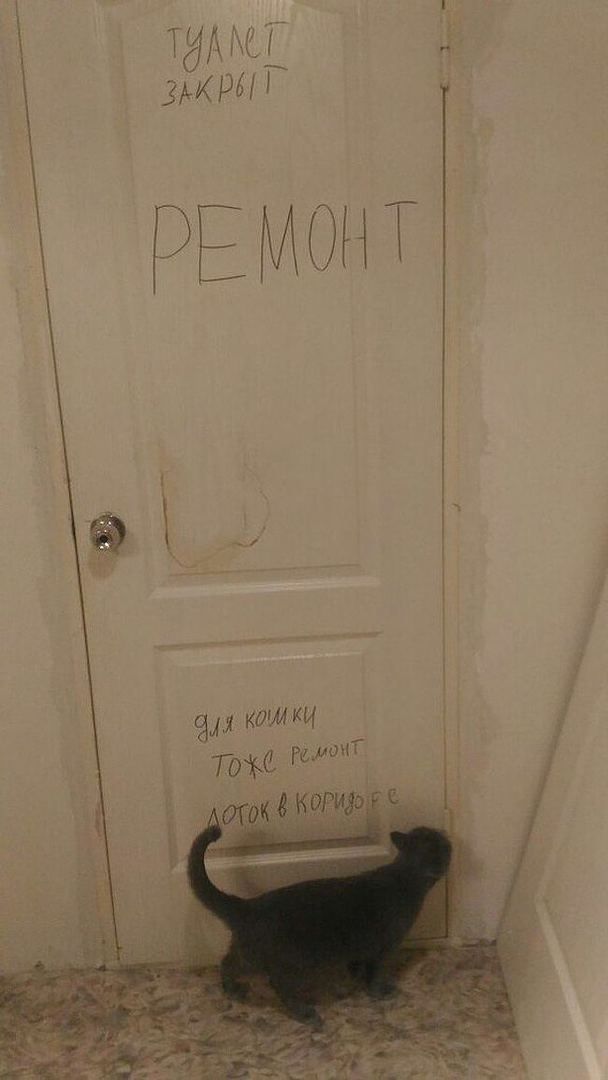 ТУАЛЕТ
ЗАКРЫТ
РЕМОНТ
для кошки
ТОЖЕ РЕМОНТ
ЛОТОК В КОРИДОРЕ